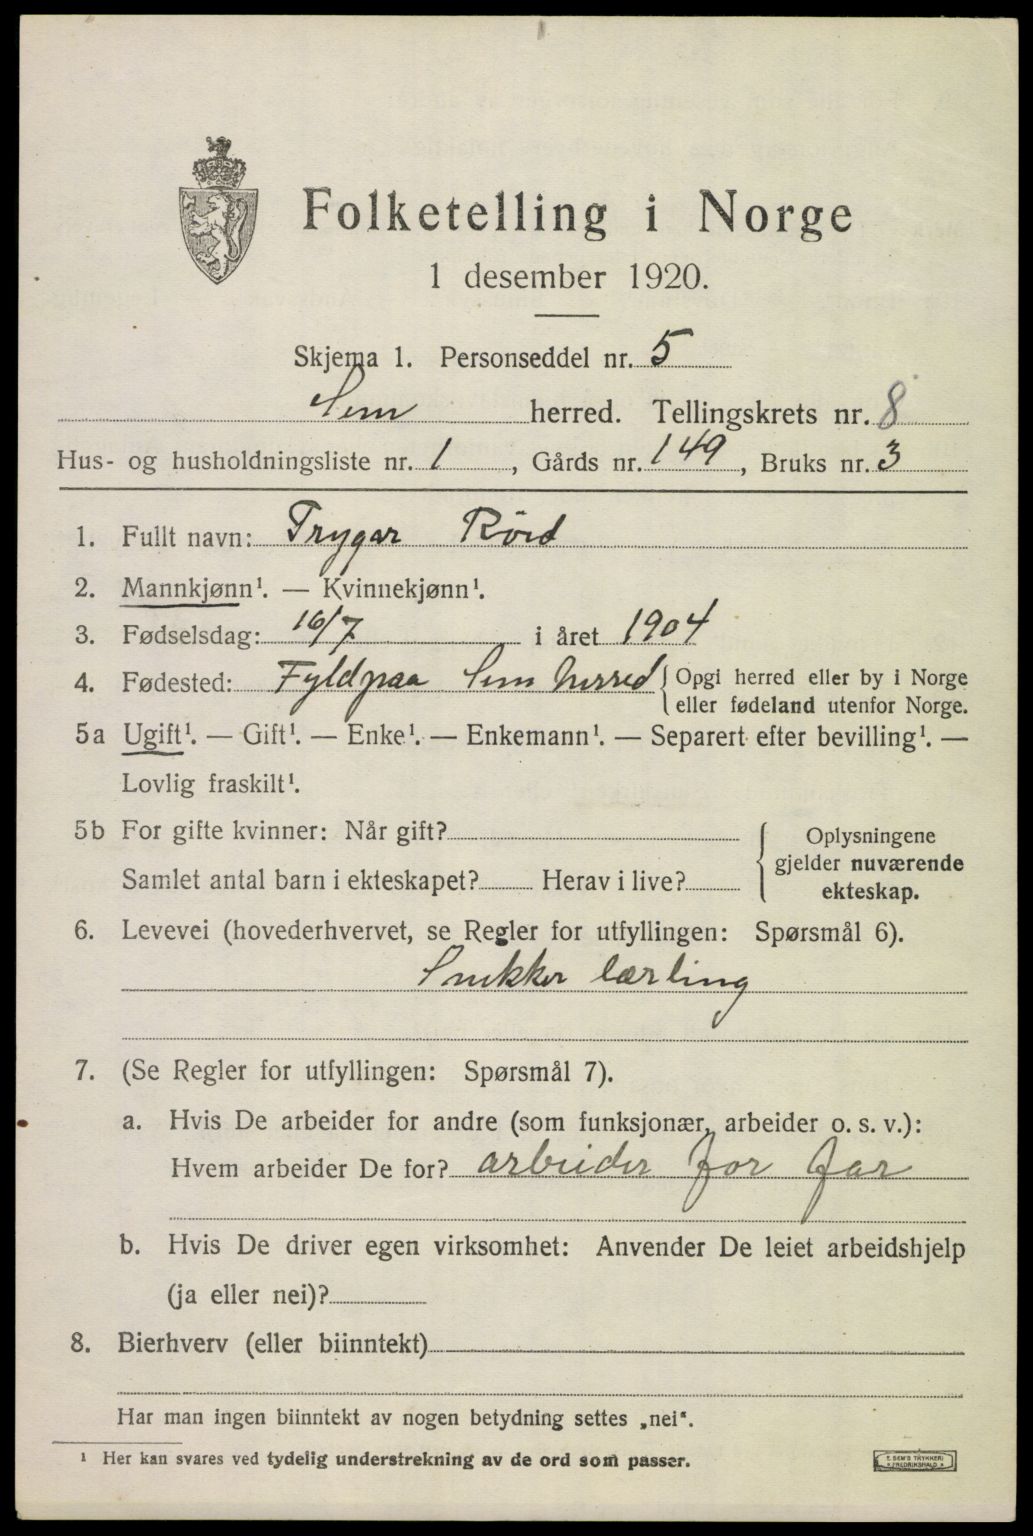 Folketelling i Norge
1 desember 1920.
Skjema 1. Personseddel nr. 5
Sem herred. Tellingskrets nr. 8
Hus- og husholdningsliste nr. 1, Gårds nr. 149, Bruks nr. 3
1. Fullt navn: Trygar Röed
2. Mannkjønn¹. — Kvinnekjønn¹.
3. Fødselsdag: 16/7 i året 1904
4. Fødested: Fyldpaa Sem herred { Opgi herred eller by i Norge
eller fødeland utenfor Norge.
5a Ugift¹. — Gift¹. — Enke¹. — Enkemann¹. — Separert efter bevilling¹. —
Lovlig fraskilt¹.
5b For gifte kvinner: Når gift?
Samlet antal barn i ekteskapet? Herav i live?
{ Oplysningene
gjelder nuværende
ekteskap.
6. Levevei (hovederhvervet, se Regler for utfyllingen: Spørsmål 6).
Snekker lærling
7. (Se Regler for utfyllingen: Spørsmål 7).
a. Hvis De arbeider for andre (som funksjonær, arbeider o. s. v.):
Hvem arbeider De for? arbeider for far
b. Hvis De driver egen virksomhet: Anvender De leiet arbeidshjelp
(ja eller nei)?
8. Bierhverv (eller biinntekt)
Har man ingen biinntekt av nogen betydning settes „nei“.
¹ Her kan svares ved tydelig understrekning av de ord som passer.
E. SEM'S TRYKKERI
FREDRIKSHALD